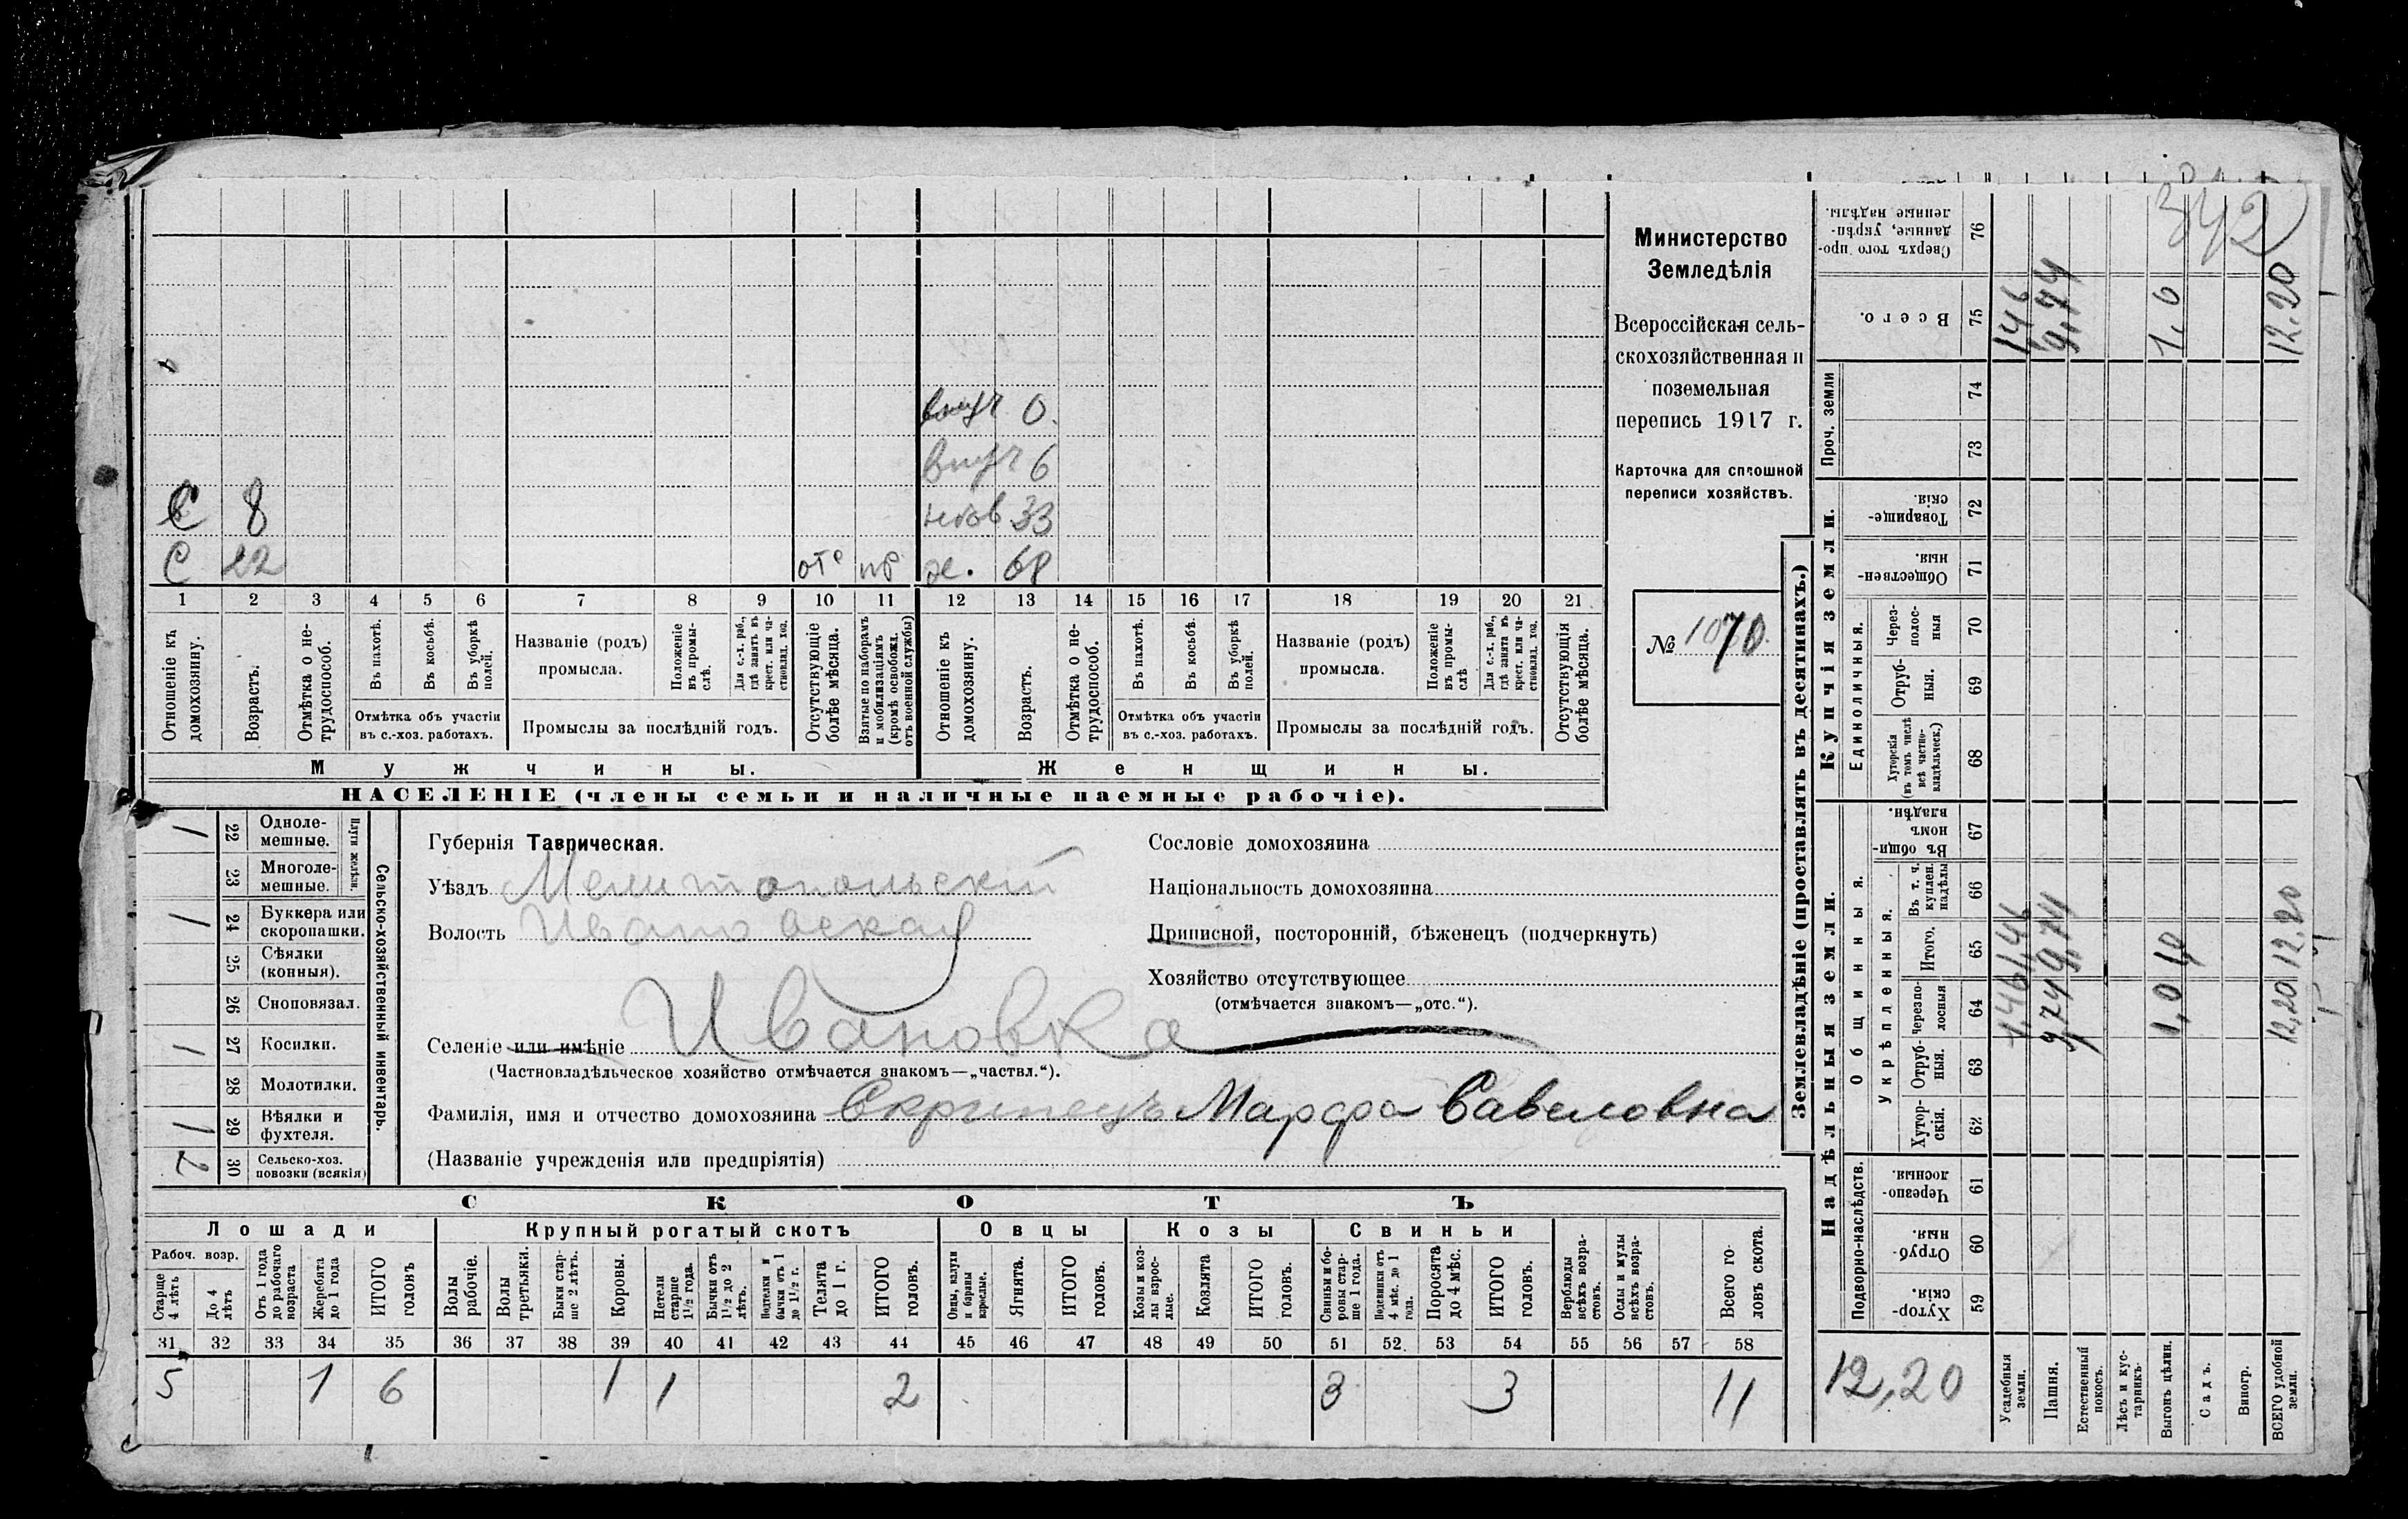 342
внуч 0.
внуч 6
С 8 невѣс 33
С 22 отс пр ж. 68
1 2 3 4 5 6 7 8 9 10 11 12 13 14 15 16 17 18 19 20 21
Отношеніе къ домохозяину.
Возрастъ.
Отмѣтка о не-трудоспособ.
Въ пахотѣ.
Въ косьбѣ.
Въ уборкѣ полей.
Отмѣтка объ участіи
въ с.-хоз. работахъ.
Названіе (родъ)
промысла.
Положеніе въ промы-слѣ.
Для с.-х. раб., гдѣ занятъ въ крест. или ча-стновлад. хоз.
Промыслы за послѣдній годъ.
Отсутствующіе болѣе мѣсяца.
Взятые по наборамъ и мобилизаціямъ (кромѣ освобожд. отъ военной службы)
Отношеніе къ домохозяину.
Возрастъ.
Отмѣтка о не-трудоспособ.
Въ пахотѣ.
Въ косьбѣ.
Въ уборкѣ полей.
Отмѣтка объ участіи
въ с.-хоз. работахъ.
Названіе (родъ)
промысла.
Положеніе въ промы-слѣ
Для с.-х. раб., гдѣ занята въ крест. или ча-стновлад. хоз.
Промыслы за послѣдній годъ.
Отсутствующія болѣе мѣсяца.
Мужчины. Женщины.
НАСЕЛЕНІЕ (члены семьи и наличные наемные рабочіе).
Министерство
Земледѣлія
Всероссійская сель-
скохозяйственная и
поземельная
перепись 1917 г.
Карточка для сплошной
переписи хозяйствъ.
№ 1070
Сельско-хозяйственный инвентарь.
Плуги желѣзн.
1 22 Одноле-мешные.
23 Многоле-мешные.
1 24 Буккера или скоропашки.
25 Сѣялки (конныя).
26 Сноповязал.
1 27 Косилки.
28 Молотилки.
1 29 Вѣялки и фухтеля.
2 30 Сельско-хоз. повозки (всякія)
Губернія Таврическая.
Уѣздъ Мелитопольскій
Волость Ивановская
Селеніе или имѣніе Ивановка
(Частновладѣльческое хозяйство отмѣчается знакомъ—„частвл.“).
Фамилія, имя и отчество домохозяина Скрипецъ Марфа Савеловна
(Названіе учрежденія или предпріятія)
Сословіе домохозяина
Національность домохозяина
Приписной, посторонній, бѣженецъ (подчеркнуть)
Хозяйство отсутствующее
(отмѣчается знакомъ—„отс.“).
СКОТЪ
Лошади Крупный рогатый скотъ Овцы Козы Свиньи
Рабоч. возр.
Старше 4 лѣтъ
До 4 лѣтъ
Отъ 1 года до рабочаго возраста
Жеребята до 1 года
ИТОГО головъ
Волы рабочіе.
Волы третьяки.
Быки стар-ше 2 лѣтъ.
Коровы.
Нетели старше 1½ года.
Бычки отъ 1½ до 2 лѣтъ.
Подтелки и бычки отъ 1 до 1½ г.
Телята до 1 г.
ИТОГО головъ.
Овцы, валухи и бараны взрослые.
Ягнята.
ИТОГО головъ.
Козы и коз-лы взрос-лые.
Козлята
ИТОГО головъ.
Свиньи и бо-ровы стар-ше 1 года.
Подсвинки отъ 4 мѣс. до 1 года.
Поросята до 4 мѣс.
ИТОГО головъ.
Верблюды всѣхъ возра-стовъ.
Ослы и мулы всѣхъ возра-стовъ.
Всего го-ловъ скота.
31 32 33 34 35 36 37 38 39 40 41 42 43 44 45 46 47 48 49 50 51 52 53 54 55 56 57 58
5 1 6 1 1 2 3 3 11
Землевладѣніе (проставлять въ десятинахъ.)
Купчія земли.
Надѣльныя земли.
Сверхъ того про-данные, укрѣп-ленные надѣлы. 76
Всего. 75 1,46 9,74 1,0 12,20
Проч. земли 74
73
Товарище-скія. 72
Обществен-ныя. 71
Единоличныя.
Через-полос-ныя 70
Отруб-ныя. 69
Хуторскія (въ томъ числѣ всѣ частно-владѣльческ.) 68
Общинныя.
Въ общин-номъ владѣн. 67
Укрѣпленныя.
Въ т. ч. куплен. надѣлы 66
Итого. 65 1,46 9,74 1,0 12,20
Черезпо-лосныя 64 1,46 9,74 1,0 12,20
Отруб-ныя. 63
Хутор-скія. 62
Подворно-наслѣдств.
Черезпо-лосныя 61
Отруб-ныя. 60
Хутор-скія. 59
12,20
Усадебныя земли.
Пашня.
Естественный покосъ.
Лѣсъ и кус-тарникъ.
Выгонъ цѣлин.
Садъ.
Виногр.
ВСЕГО удобной земли.